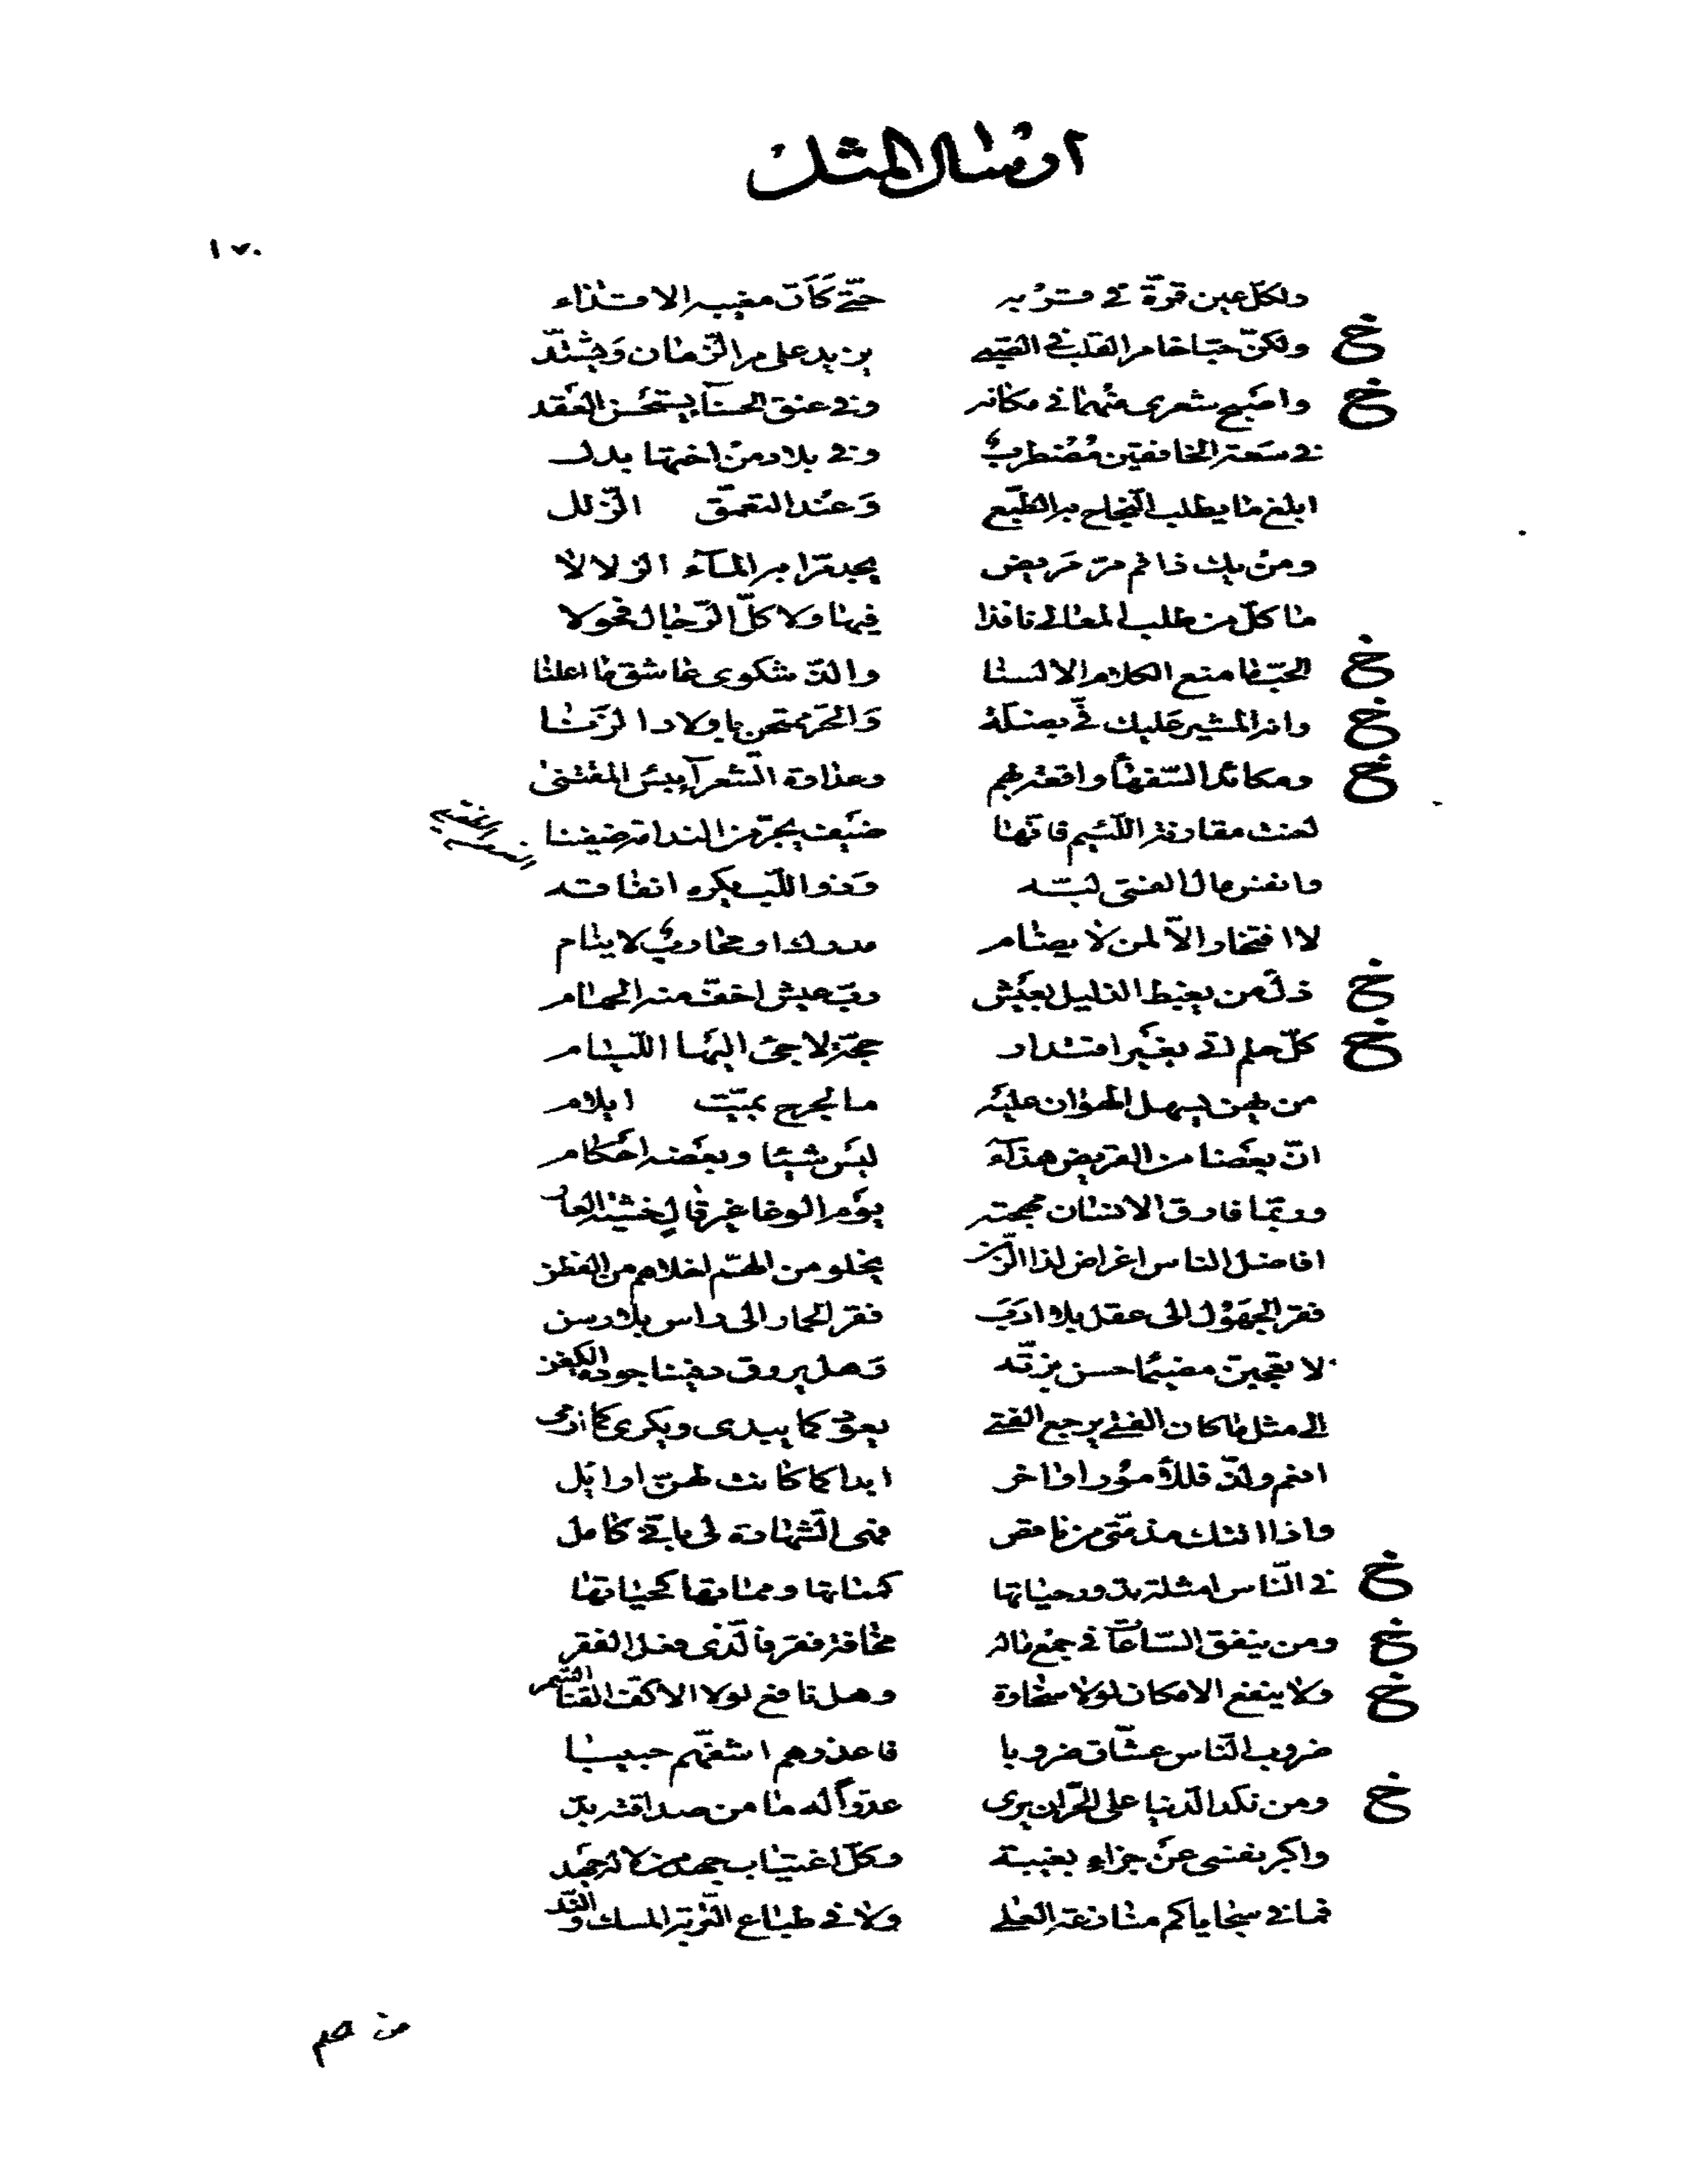 ارسال المثل
١٧٠
ولكلّ عين قرّة في قربه حتّى كأنّ مغيبه الاقذاء
خ ولكنّ حبّا خامر القلب في الصبى يزيد على مر الزّمان وَيشتدّ
خ واصبح شعرى منهما في مكانه وفي عنق الحسنآ يستحسن العقد
في سَعة الخافقين مُضطربٌ وفي بلاد من اختها بدل
ابلغ ما يطلب النّجاح به الطّبع وَعند التعمّق الزّلل
ومن يك ذا فم مرّ مَريض يجد مرّا به المآء الزلالا
ما كلّ من طلب المعالى نافذا فيها ولا كلّ الرّجال فحولا
خ الحبّ ما منع الكلام الالسنا والذّ شكوى عاشق ما اعلنا
خ وانه المشير عَليك فيّ بضلّة وَالحرّ ممتحن باولاد الزّنا
خ ومكائد السّفهآ واقعة بهم وعداوة الشّعرآء بئس المقتنى
لعنت مقارنة اللّئيم فانّها ضَيف يجرّ من الندامة ضيفنا
وانفس مال الفتى لبّه وَذو اللّب يكره انفاقه
لا افتخار الاّ لمن لا يضام مدرك او محاربٌ لا ينام
خ ذلّ من يغبط الذليل بعَيش ربّ عيش اخفّ منه الحمام
خ كلّ حلم اتى بغير اقتدار حجّة لاجئ اليها اللّئام
من يهن يسهل الهوان عليه ما لجرح بميّت ايلام
انّ بعضا من القريض هذآء ليس شيئا وبعضه احكام
وربّما فارق الانسان مهجته يوم الوغا غير قالٍ خشية العار
افاضل الناس اغراض لذا الزّمن يخلو من الهمّ اخلاهم من الفطن
فقر الجهول الى عقل بلا ادب فقر الحمار الى راس بلا رسن
لا يعجبنّ مضيما حسن بزّته وَهل يروق دفينا جودة الكفن
الى مثل ما كان الفتى يرجع الفتى يعود كما يبدى ويكرى كما ارمى
انعم ولذّ فللأمور اواخر ابدا كما كانت لهنّ اوائل
واذا اتتك مذمّتى من ناقص فهى الشّهادة لى بانّى كامل
خ في النّاس امثلة تدور حياتها كمماتها ومماتها كحياتها
خ ومن ينفق السّاعات في جمع ماله مخافة فقر فالّذى فعل الفقر
خ ولا ينفع الامكان لولا سخاؤه وهل نافع لولا الاكفّ القنا السّمر
ضروب النّاس عشّاق ضروبا فاعذرهم اشفّهم حبيبا
خ ومن نكد الدّنيا على الحرّ ان يرى عدوّا له ما من صداقته بدّ
واكبر نفسى عن جزاء بغيبة وكلّ اغتياب جهد من لا له جهد
فما في سجاياكم منازعة العلى ولا في طباع التّربة المسك والنّد